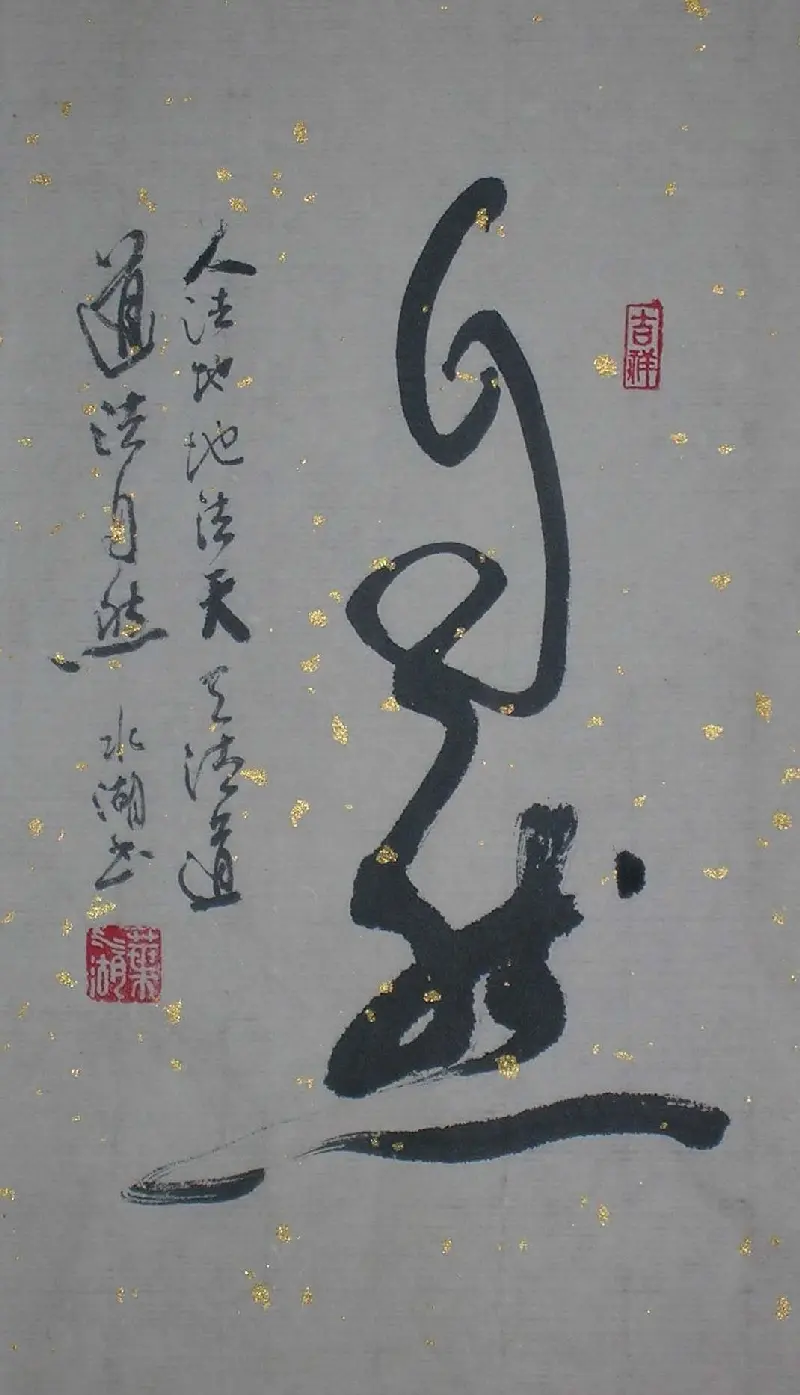 自然
吉祥
人法地地法天天法道
道法自然 水湖书
葉水湖